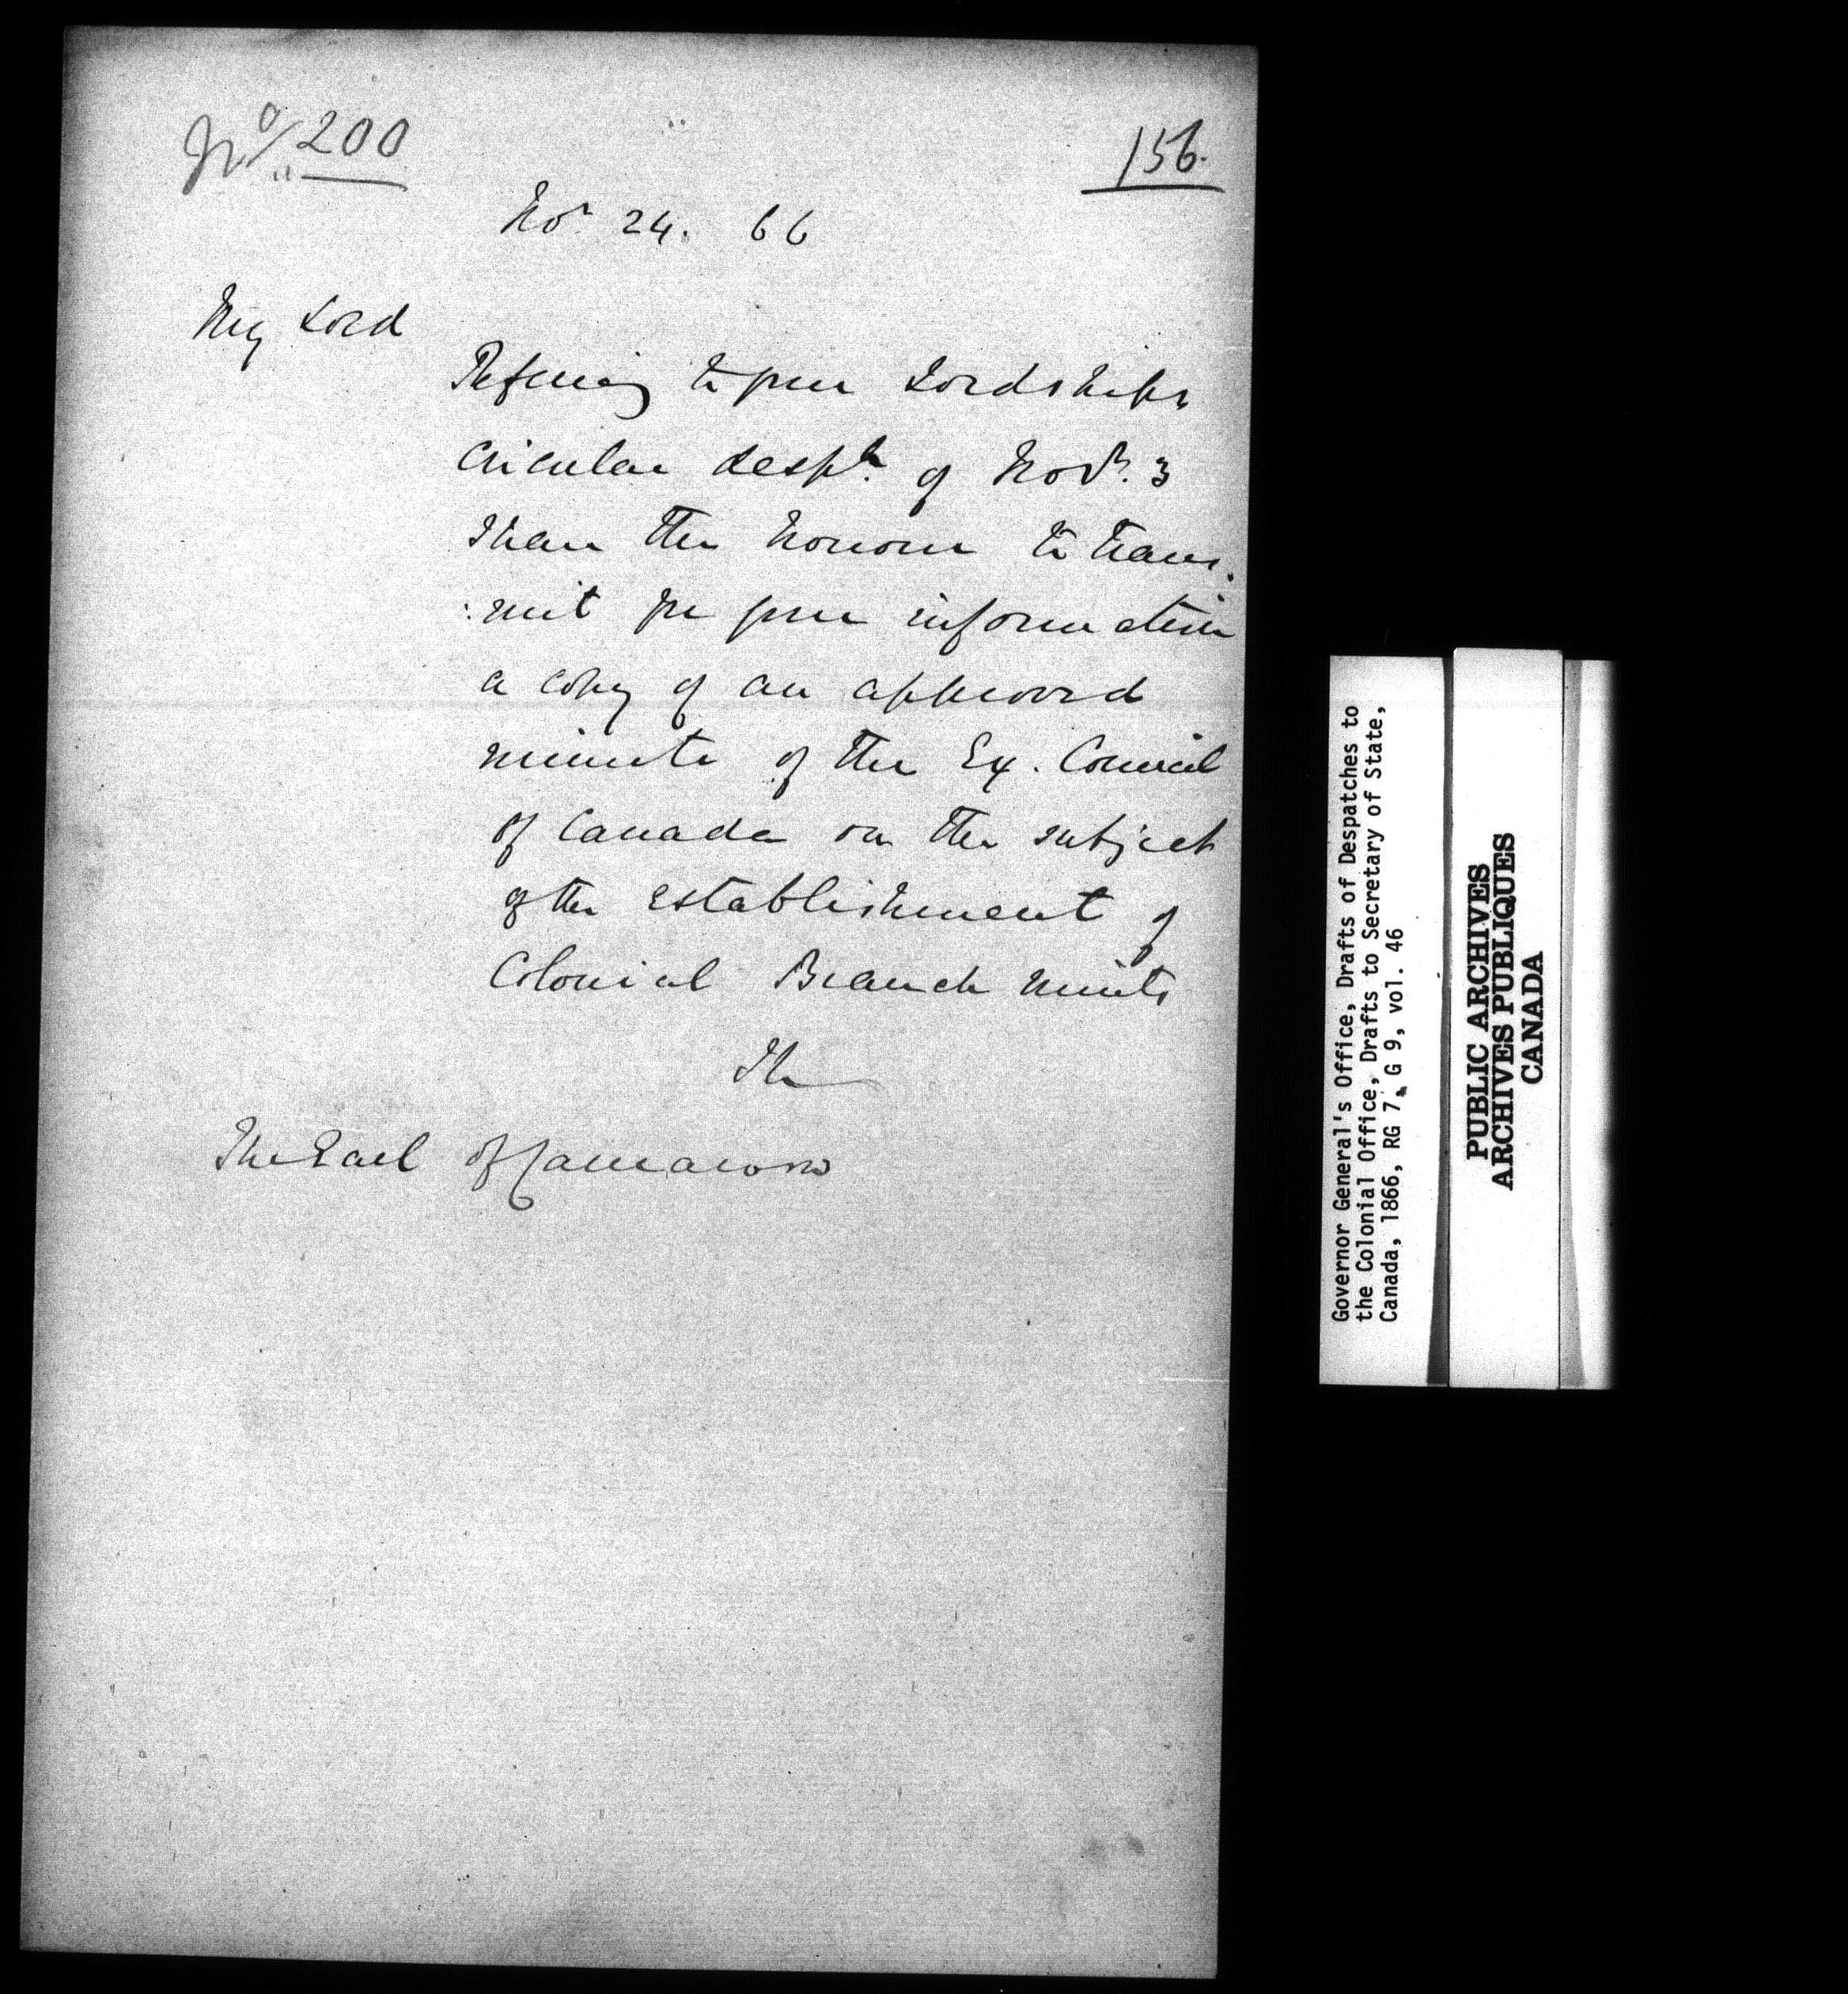 No 200
156.
Nov 24. 66
My Lord
Referring to your Lordships
Circular desph. of Novr. 3
I have the honour to trans.
:mit for your information
a copy of an approved
minute of the Ex. Council
of Canada on the subject
of the establishment of
Colonial Branch Mints
The Earl of Carnarvon
Governor General's Office, Drafts of Despatches to
the Colonial Office, Drafts to Secretary of State,
Canada, 1866, RG 7, G 9, vol. 46
PUBLIC ARCHIVES
ARCHIVES PUBLIQUES
CANADA